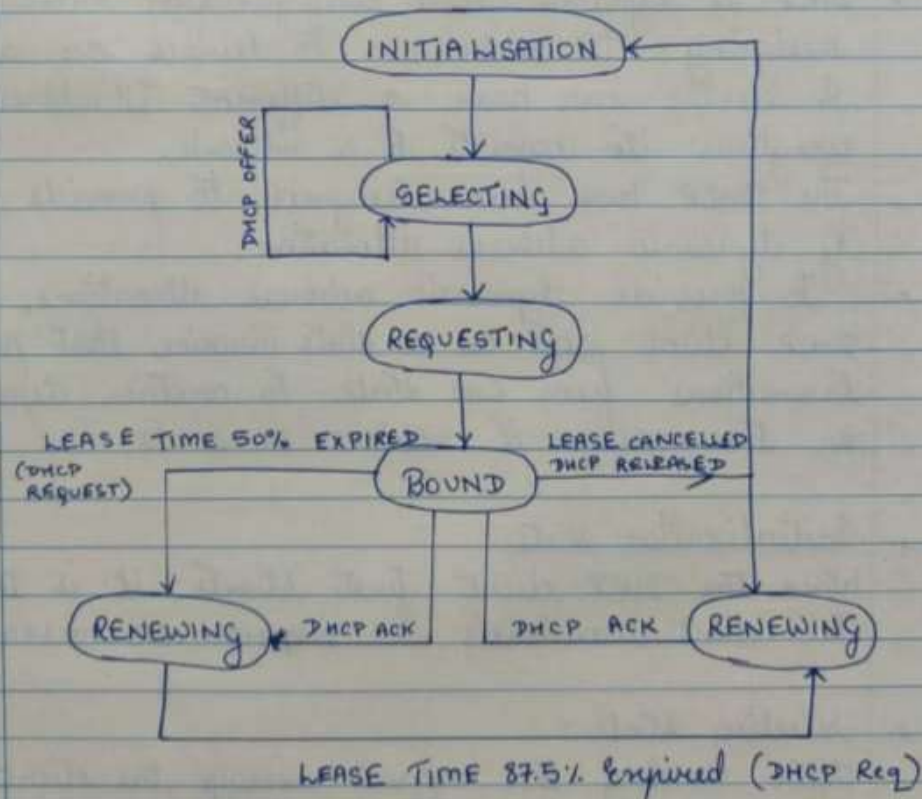 INITIALISATION
DHCP OFFER
SELECTING
REQUESTING
LEASE TIME 50% EXPIRED
(DHCP
REQUEST)
BOUND
LEASE CANCELLED
DHCP RELEASED
RENEWING
DHCP ACK
DHCP ACK
RENEWING
LEASE TIME 87.5% Expired (DHCP Req)